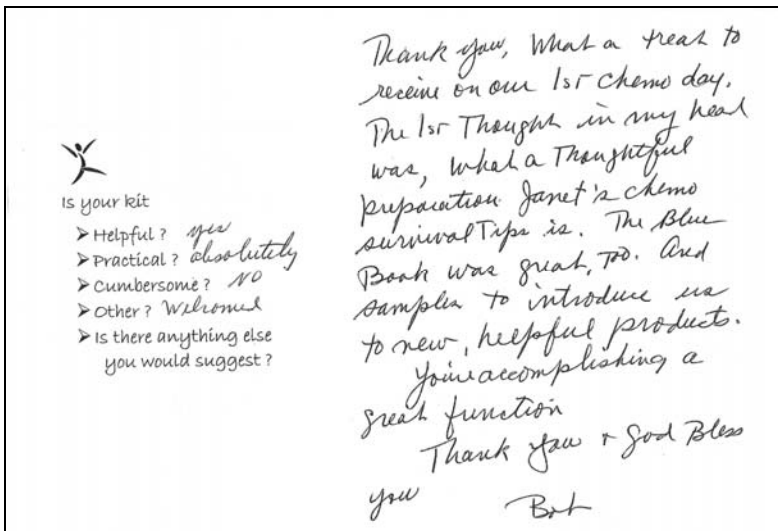 Is your kit
➤ Helpful? yes
➤ Practical? absolutely
➤ Cumbersome? NO
➤ Other? Welcomed
➤ Is there anything else
you would suggest?
Thank you, What a treat to
receive on our 1st chemo day.
The 1st Thought in my head
was, what a Thoughtful
preparation Janet's chemo
survival Tips is. The Blue
Book was great, too. And
samples to introduce us
to new, helpful products.
You're accomplishing a
great function
Thank you + God Bless
you